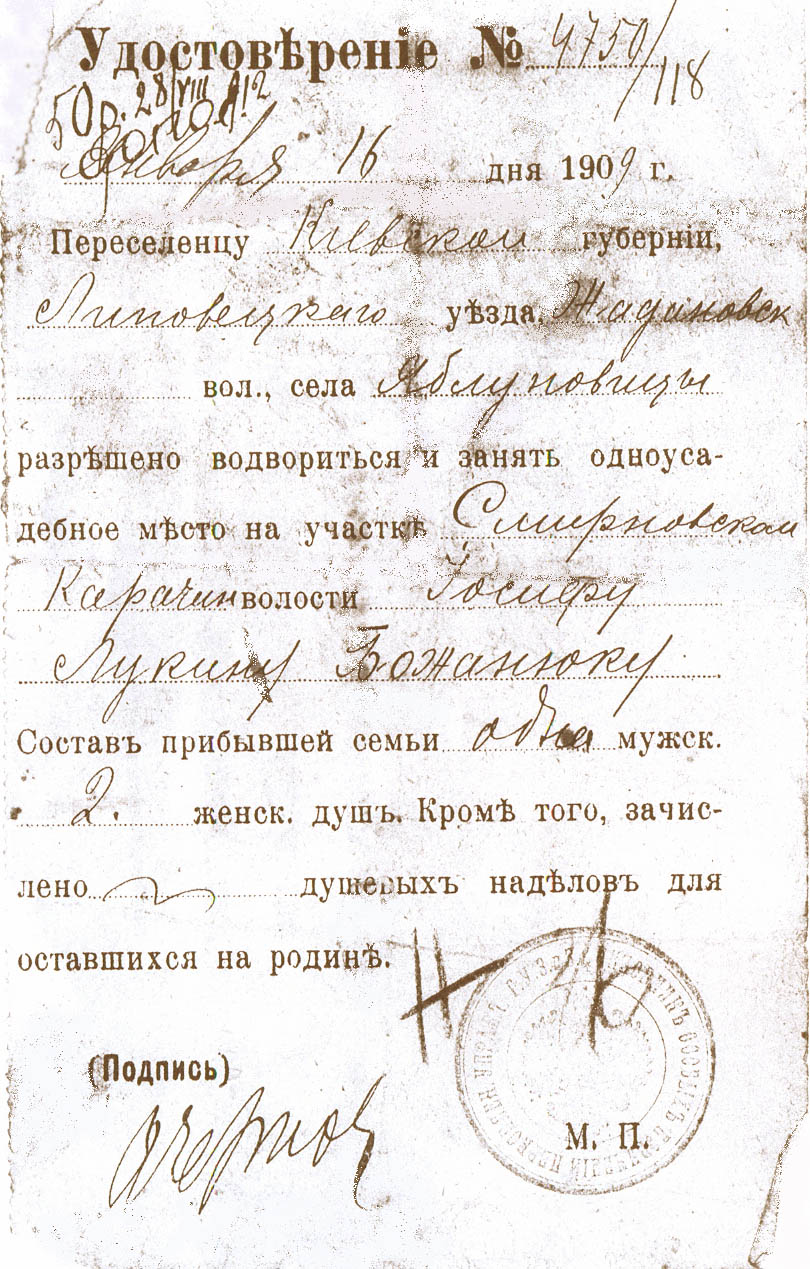 Удостовѣреніе № 4750/118
50 р. 28/VIII 912
Января 16 дня 1909 г.
Переселенцу Кіевской губерніи,
Липовецкаго уѣзда, Жадановск
вол., села Яблуновицы
разрѣшено водвориться и занять одноуса-
дебное мѣсто на участкѣ Смирновском
Карачин волости Іосифу
Лукину Божанюку
Составъ прибывшей семьи одна мужск.
2. женск. душъ. Кромѣ того, зачис-
лено душевыхъ надѣловъ для
оставшихся на родинѣ.
(Подпись)
М. П.